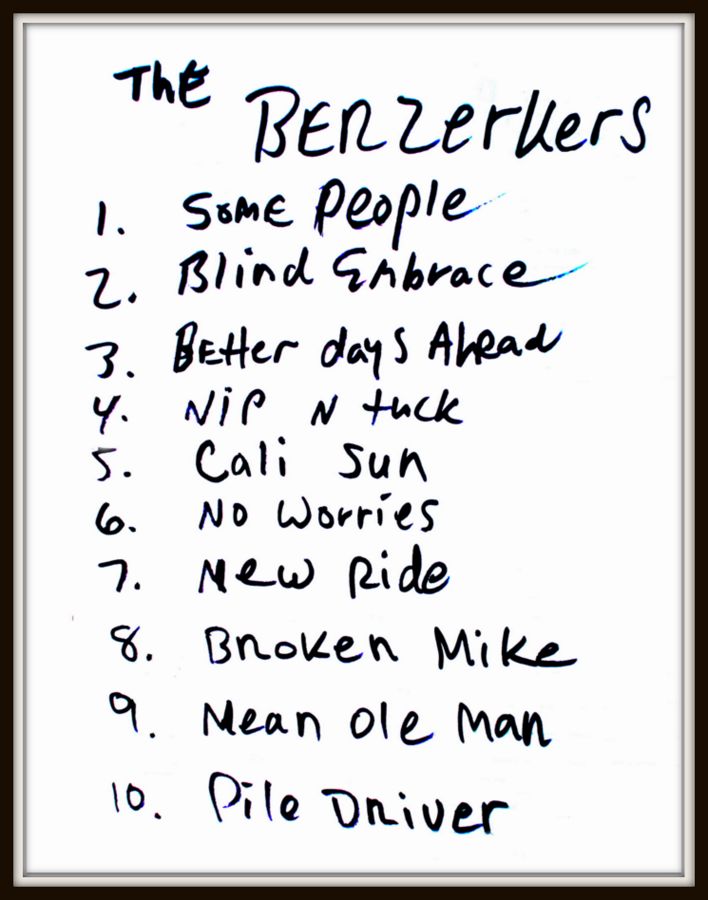 The BERZerkers
1. Some People
2. Blind Embrace
3. Better days Ahead
4. Nip N tuck
5. Cali Sun
6. No Worries
7. New Ride
8. Broken Mike
9. Mean Ole Man
10. Pile Driver